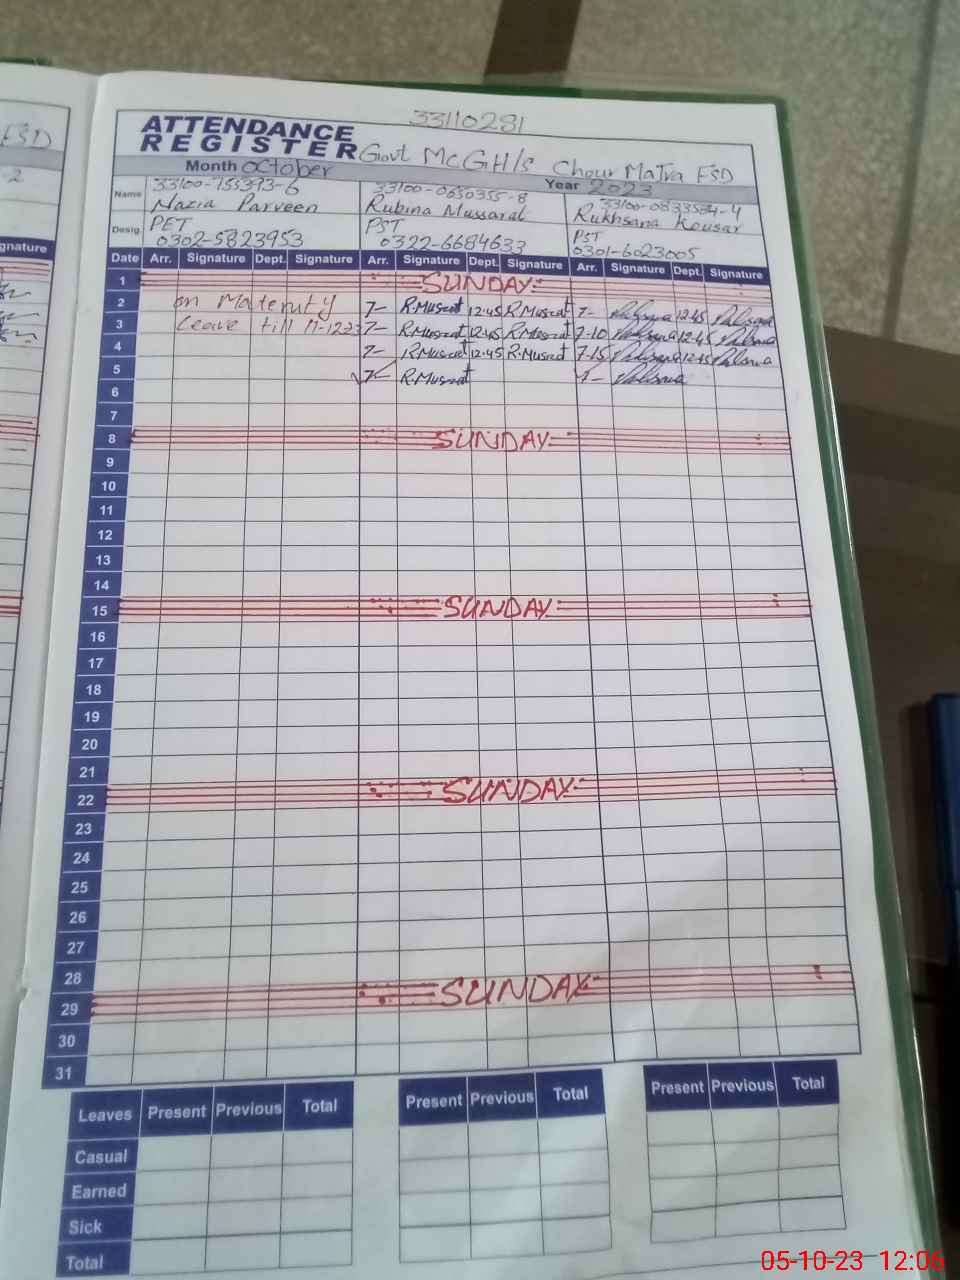 33110281
ESD
ATTENDANCE
REGISTER Govt MCGH/S Chour Matra FSD
Month October Year 2023
Name 33100-0650355-8 33100-0833584-4
Nazia Parveen Rubina Mussarat Rukhsana Kousar
Desig. PET PST PST
0302-5823953 0322-6684633 0301-6023005
gnature
Date Arr. Signature Dept. Signature Arr. Signature Dept. Signature Arr. Signature Dept. Signature
1 SUNDAY
2 on Maternity 7- R.Musrat 12:45 R.Musrat 7- 12:45
3 Leave till 11-12-23 7- R.Musrat 12:45 R.Musrat 7-10 12:45
4 7- R.Musrat 12:45 R.Musrat 7-15 12:45
5 7- R.Musrat 7-
6
7
8 SUNDAY
9
10
11
12
13
14
15 SUNDAY
16
17
18
19
20
21
22 SUNDAY
23
24
25
26
27
28
29 SUNDAY
30
31
Leaves Present Previous Total Present Previous Total Present Previous Total
Casual
Earned
Sick
Total
05-10-23 12:06